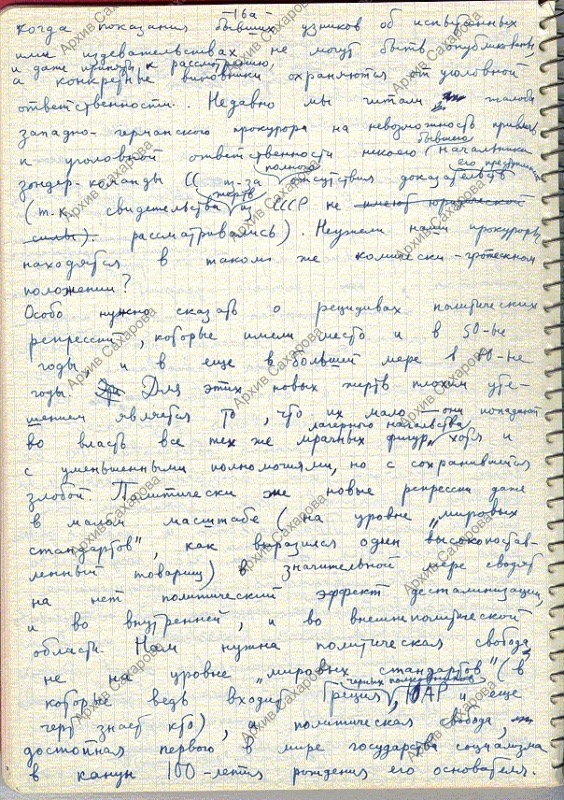 -16а-
когда показания бывших узников об испытанных
ими издевательствах не могут быть опубликованы
и даже приняты к рассмотрению,
а конкретные виновники охраняются от уголовной
ответственности.. Недавно мы читали жалобы
западно-германского прокурора на невозможность привлечь
бывшего
к уголовной ответственности некоего начальника
полного его преступлений
зондер-команды СС из-за отсутствия доказательств
жертв
(т.к. свидетельства из СССР не имеют юридической
силы). рассматривались). Неужели наши прокуроры
находятся в таком же комически-гротескном
положении?
Особо нужно сказать о рецидивах политических
репрессий, которые имели место и в 50-ые
годы, и в еще большей мере в 60-не
годы. Для этих новых жертв плохим уте-
шением является то, что их мало – они попадают
лагерного начальства
во власть все тех же мрачных фигур, хотя и
с уменьшенными полномочиями, но с сохранившейся
злобой. Политически же новые репрессии даже
в малом масштабе (на уровне „мировых
стандартов", как выразился один высокопостав-
ленный товарищ) в значительной мере сводят
на нет политический эффект десталинизации,
и во внутренней, и во внешнеполитической
области. Нам нужна политическая свобода
не на уровне „мировых стандартов" (в
черных полковников
которые ведь входит Греция, ЮАР и еще
черт знает кто), а политическая свобода,
достойная первого в мире государства социализма
в канун 100-летия рождения его основателя.
Архив Сахарова